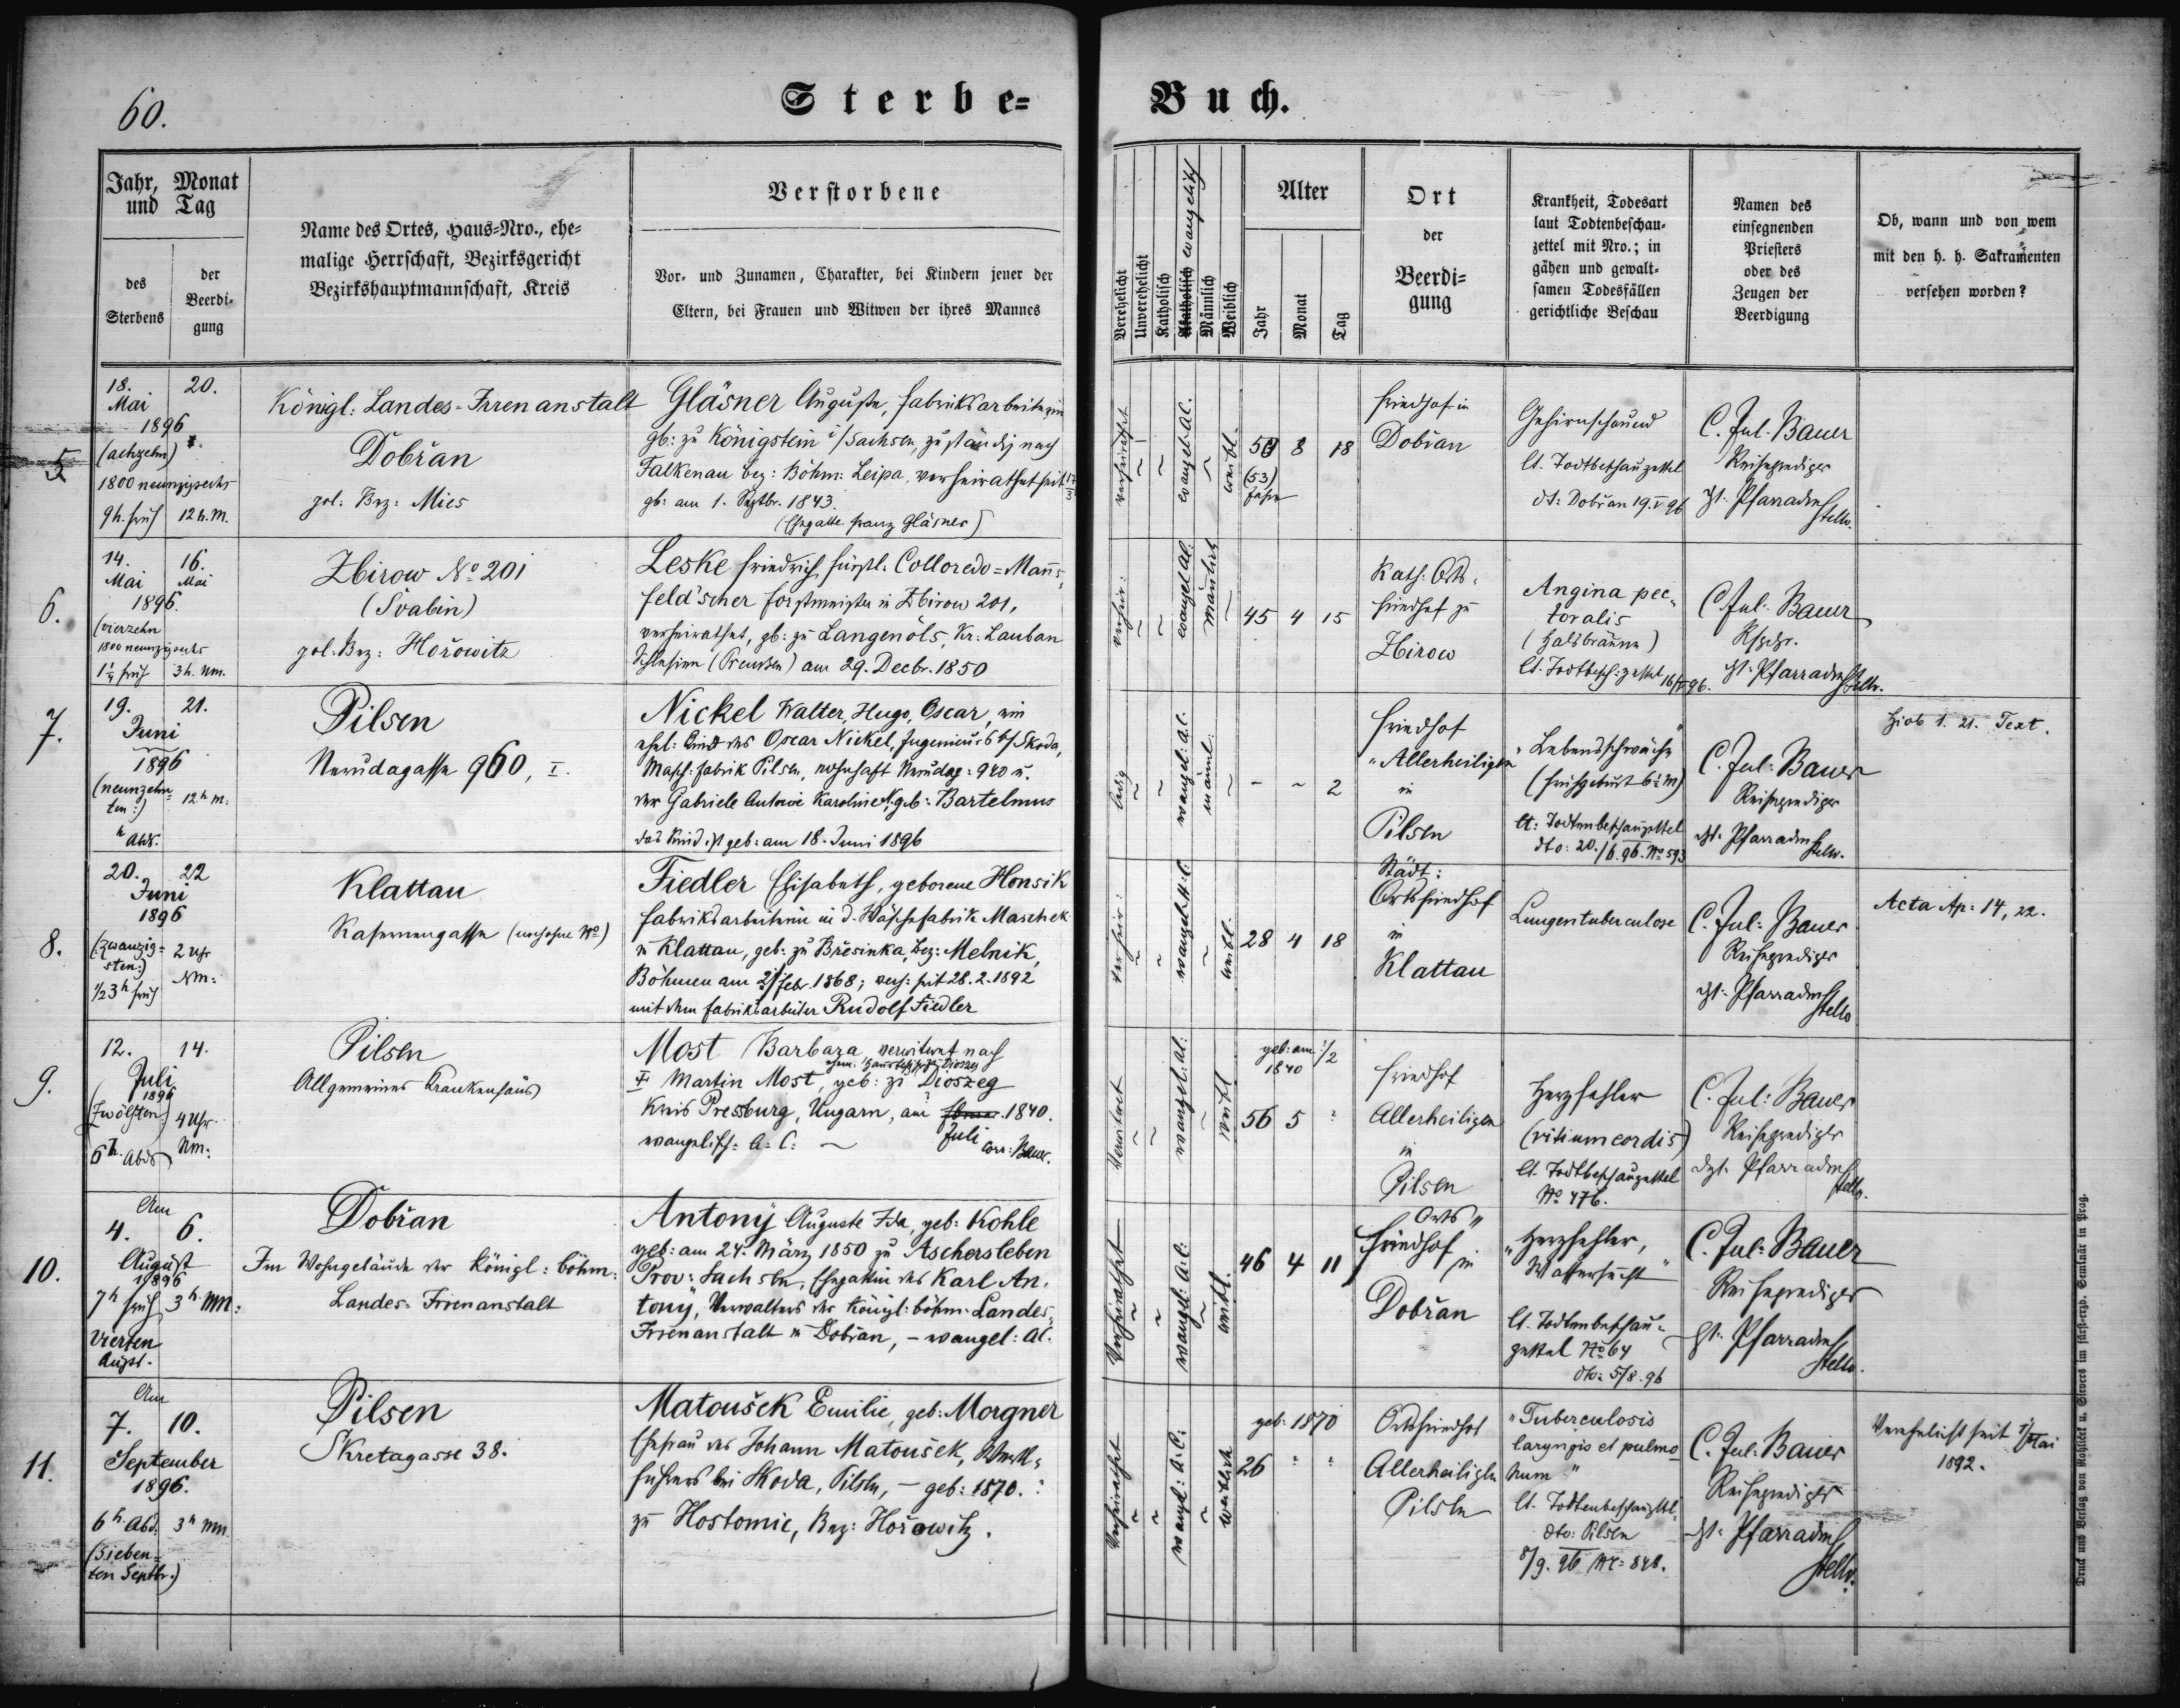 60.
Sterbe-
Buch.
Jahr, Monat
und Tag
des
Sterbens
der
Beerdi-
gung
Name des Ortes, Haus-Nro., ehe-
malige Herrschaft, Bezirksgericht
Bezirkshauptmannschaft, Kreis
Verstorbene
Vor- und Zunamen, Charakter, bei Kindern jener der
Eltern, bei Frauen und Witwen der ihres Mannes
Verehelicht
Unverehelicht
Katholisch
Akatholisch evangelisch
Männlich
Weiblich
Alter
Jahr
Monat
Tag
Ort
der
Beerdi-
gung
Krankheit, Todesart
laut Todtenbeschau-
zettel mit Nro.; in
gähen und gewalt-
samen Todesfällen
gerichtliche Beschau
Namen des
einsegnenden
Priesters
oder des
Zeugen der
Beerdigung
Ob, wann und von wem
mit den h. h. Sakramenten
versehen worden?
5
18. 20.
Mai
1896
(achzehn)
1800 neunzigsechs
9h. früh 12 h. M.
Königl: Landes-Irrenanstalt
Dobřan
pol: Bez: Mies
Gläsner Auguste, Fabriksarbeiterin
gb: zu Königstein i/Sachsen, zuständig nach
Falkenau bez: Böhm: Leipa, verheirathet seit
gb: am 1. Septbr. 1843.
(Ehegatte Franz Gläsner)
verheirathet
evangel. A.C.
weibl.
50 8 18
(53)
Jahre
Friedhof in
Dobřan
Gehirnschwund
lt. Todtbeschauzettel
dt: Dobřan 19.V 96
C. Jul. Bauer
Reiseprediger
Pfarradm
stellv.
6.
14. 16.
Mai Mai
1896.
(vierzehn
1800 neunzigsechs
früh 3 h. Nm.
Zbirow No 201
(Švabin)
pol. Bez: Hořowitz
Leske Friedrich fürstl. Colloredo-Manns-
feld'scher Forstmeister in Zbirow 201,
verheirathet, gb: zu Langenöls, Kr: Lauban
Schlesien (Preussen) am 29. Decbr. 1850
verheir:
evangel. A.C.
männlich
45 4 15
Kath: Orts-
friedhof zu
Zbirow
Angina pec-
toralis
(Halsbräune)
lt. Todtbesch: zettel 16/V 96.
C. Jul. Bauer
Rsprdgr.
Pfarradm
stellv.
7.
19. 21.
Juni
1896
(neunzehn-
ten:) 12 h M:
h Abds.
Pilsen
Nerudagasse 960, I.
Nickel Walter, Hugo, Oscar, ein
ehel: Kind des Oscar Nickel, Ingenieurs b/ Skoda,
Masch: fabrik Pilsen, wohnhaft Nerudag: 940 u.
der Gabriele Antonie Karoline N. geb: Bartelmus
das Kind ist geb: am 18. Juni 1896
ledig
evangel: A.C.
männl.
- - 2
Friedhof
"Allerheiligen"
in
Pilsen
"Lebensschwäche"
(Frühgeburt 6½ M)
lt: Todtenbeschauzettel
dto: 20./6. 96. No 593
C. Jul: Bauer
Reiseprediger
Pfarradm
stellv.
Hiob 1. 21. Text.
8.
20. 22
Juni
1896
(zwanzig- 2 Uhr
sten:) Nm:
½3h früh
Klattau
Kasernengasse (noch ohne No)
Fiedler Elisabeth, geborene Honsik
Fabriksarbeiterin in d. Wäschefabrik Maschek
in Klattau, geb: zu Břesinka, Bez: Melnik,
Böhmen am 2/Febr. 1868; verh: seit 28. 2. 1892
mit dem Fabriksarbeiter Rudolf Fiedler
verheir:
evangel. A.C.
weibl.
28 4 18
Städt:
Ortsfriedhof
in
Klattau
Lungentuberculose
C. Jul: Bauer
Reiseprediger
Pfarradm
stellv
Acta Ap: 14, 22.
9.
12. 14.
Juli
1896
(Zwölften:) 4 Uhr
6 h. Abds Nm:
Pilsen
Allgemeines Krankenhaus
Most Barbara, verwitwet nach
Martin Most, geb: zu Dioszeg
Kreis Pressburg, Ungarn, am 1840.
evangelisch: A: C: Juli corr: Bauer.
Verwitwet
evangel: A.C.
weibl
geb: am 1/2
1840
56 5
Friedhof
Allerheiligen
in
Pilsen
Herzfehler
(vitium cordis)
lt. Todtbeschauzettel
No 476.
C. Jul: Bauer
Reiseprediger
dzt. Pfarradm
stellv.
10.
Am
4. 6.
August
1896
7 h früh 3 h. Mn:
Vierten
August.
Dobřan
Im Wohngebäude der königl: böhm:
Landes-Irrenanstalt
Antony Auguste Ida, geb: Kohle
geb: am 24. März 1850 zu Aschersleben
Prov: Sachsen, Ehegattin des Karl An-
tony, Verwalters der königl: böhm: Landes-
Irrenanstalt in Dobřan, - evangel: AC.
Verheirathet
evangel: A.C:
weibl.
46 4 11
Orts
Friedhof in
Dobřan
"Herzfehler,
Wassersucht"
lt. Todtenbeschau-
zettel No 64
dto: 5/8. 96
C. Jul: Bauer
Reiseprediger
Pfarradm
stellv.
11.
Am
7. 10.
September
1896.
6 h Abd: 3 h Mn
(Sieben-
ten Septbr.)
Pilsen
Skretagasse 38.
Matoušek Emilie, geb: Morgner
Ehefrau des Johann Matoušek, Werk-
führers bei Skoda, Pilsen, - geb: 1870.
zu Hostomic, Bez: Hořowitz.
Verheirathet
evangl: A.C:
weiblich
geb: 1870
26
Ortsfriedhof
Allerheiligen
Pilsen
"Tuberculosis
laryngis et pulmo-
num"
lt. Todtenbeschauzettel
dto: Pilsen
8/9. 96 Nr: 848.
C. Jul. Bauer
Reiseprediger
Pfarradm
stellv.
Verehelicht seit Mai
1892.
Druck und Verlag von Rohlicek u. Sievers im fürst-erzb. Seminär in Prag.